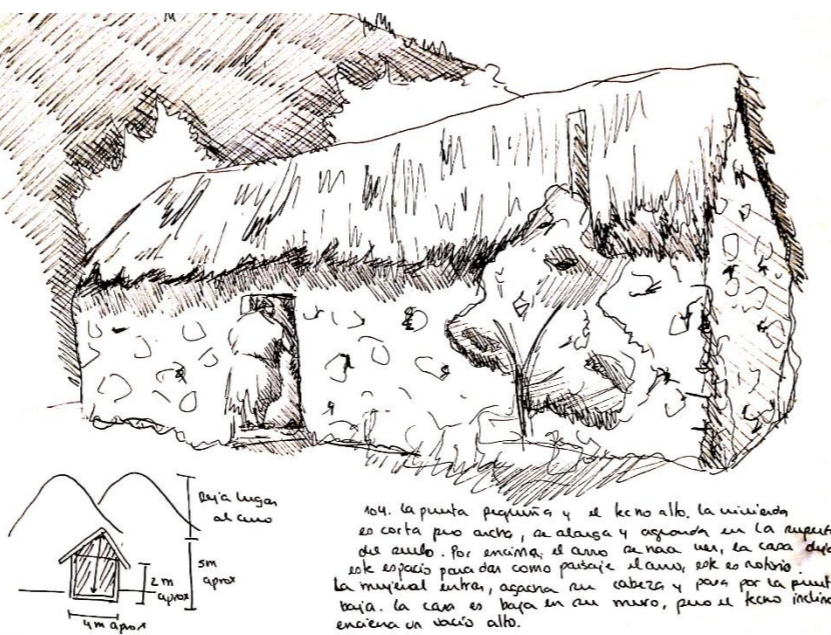 Deja lugar
al cerro
5m
aprox
2m
aprox
4m aprox
104. La puerta pequeña y el techo alto. la vivienda
es corta pero ancha, se alarga y agranda en la superfi
del suelo. Por encima, el cerro se hace ver, la casa deja
este espacio para dar como paisaje el cerro, este es notorio.
La mujer al entrar, agacha su cabeza y pasa por la puerta
baja. La casa es baja en su muro, pero el techo inclina
encierra un vacío alto.